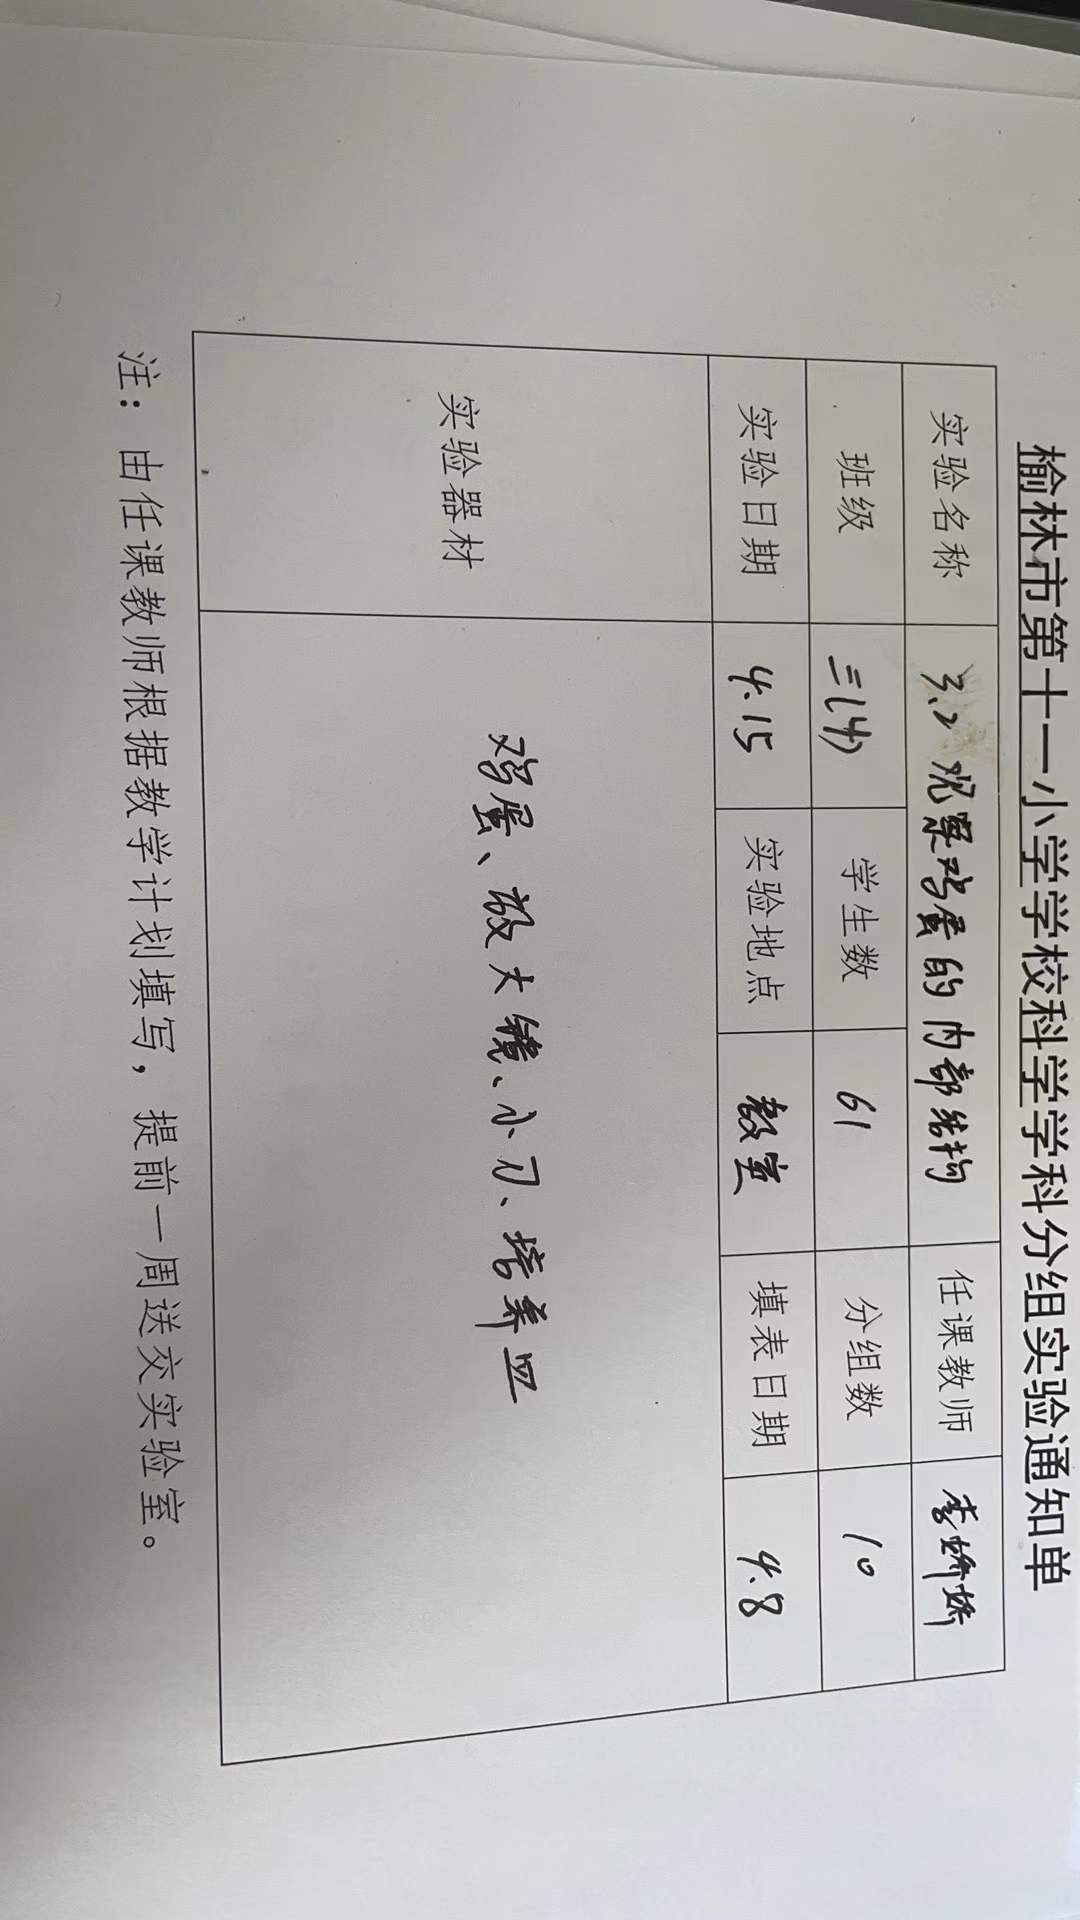 榆林市第十一小学学校科学学科分组实验通知单
实验名称 3.2 观察鸡蛋的内部结构 任课教师 李娇娇
班级 三(4) 学生数 61 分组数 10
实验日期 4.15 实验地点 教室 填表日期 4.8
实验器材 鸡蛋、放大镜、小刀、培养皿
注：由任课教师根据教学计划填写，提前一周送交实验室。